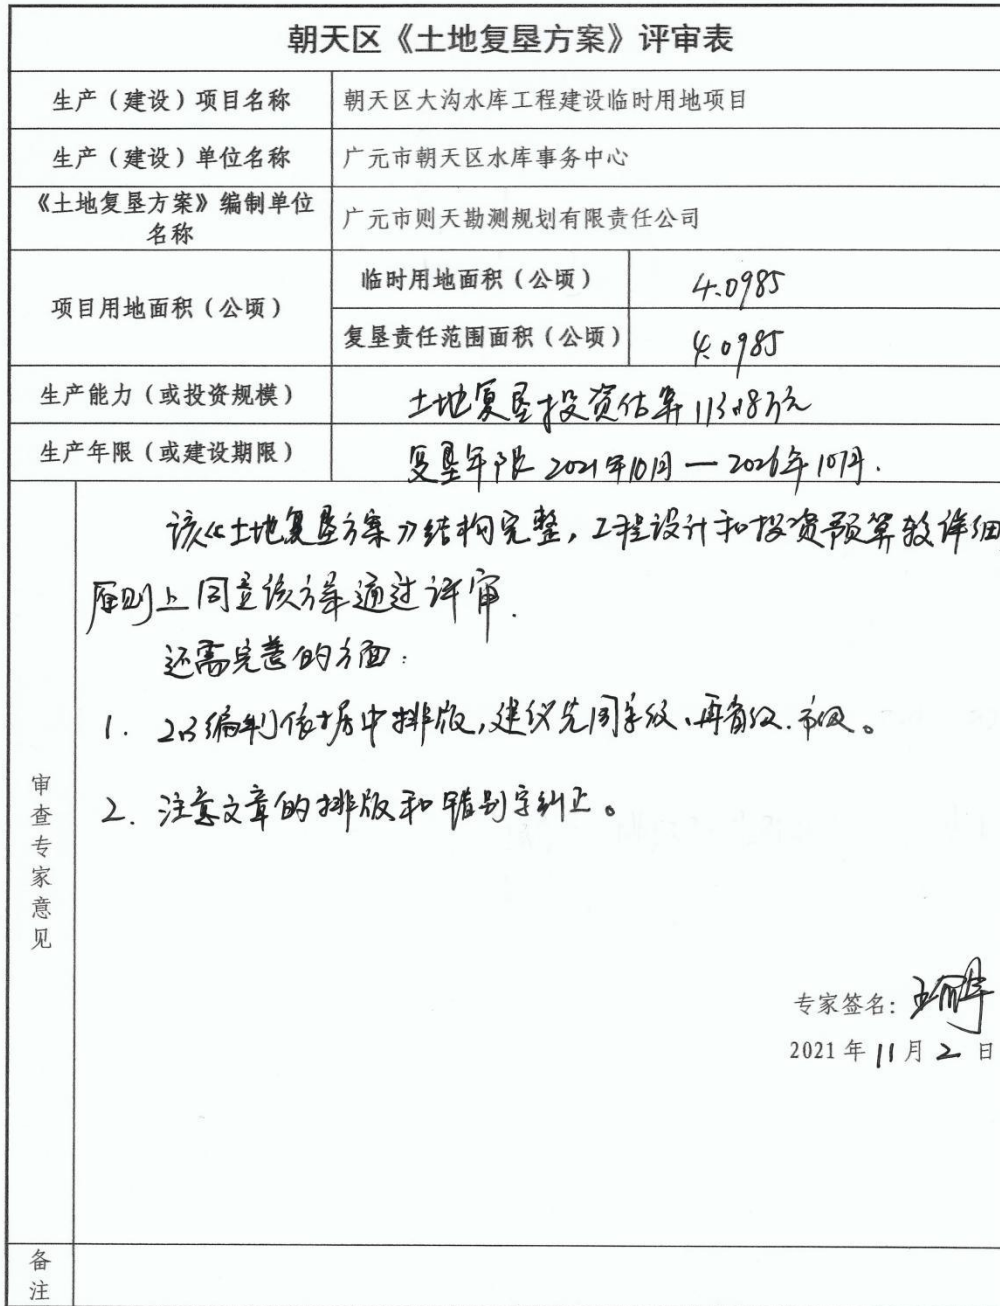 朝天区《土地复垦方案》评审表
生产（建设）项目名称 朝天区大沟水库工程建设临时用地项目
生产（建设）单位名称 广元市朝天区水库事务中心
《土地复垦方案》编制单位
名称 广元市则天勘测规划有限责任公司
项目用地面积（公顷） 临时用地面积（公顷） 4.0985
复垦责任范围面积（公顷） 4.0985
生产能力（或投资规模） 土地复垦投资估算 万元
生产年限（或建设期限） 复垦年限 2021年10月—2026年10月.
审查专家意见
该《土地复垦方案》结构完整，工程设计和投资预算较详细
原则上同意该方案通过评审.
还需完善的方面：
1. 2.3编制依据中排版，建议先国家级、再省级.市级。
2. 注意文章的排版和错别字纠正。
专家签名：
2021年11月2日
备注